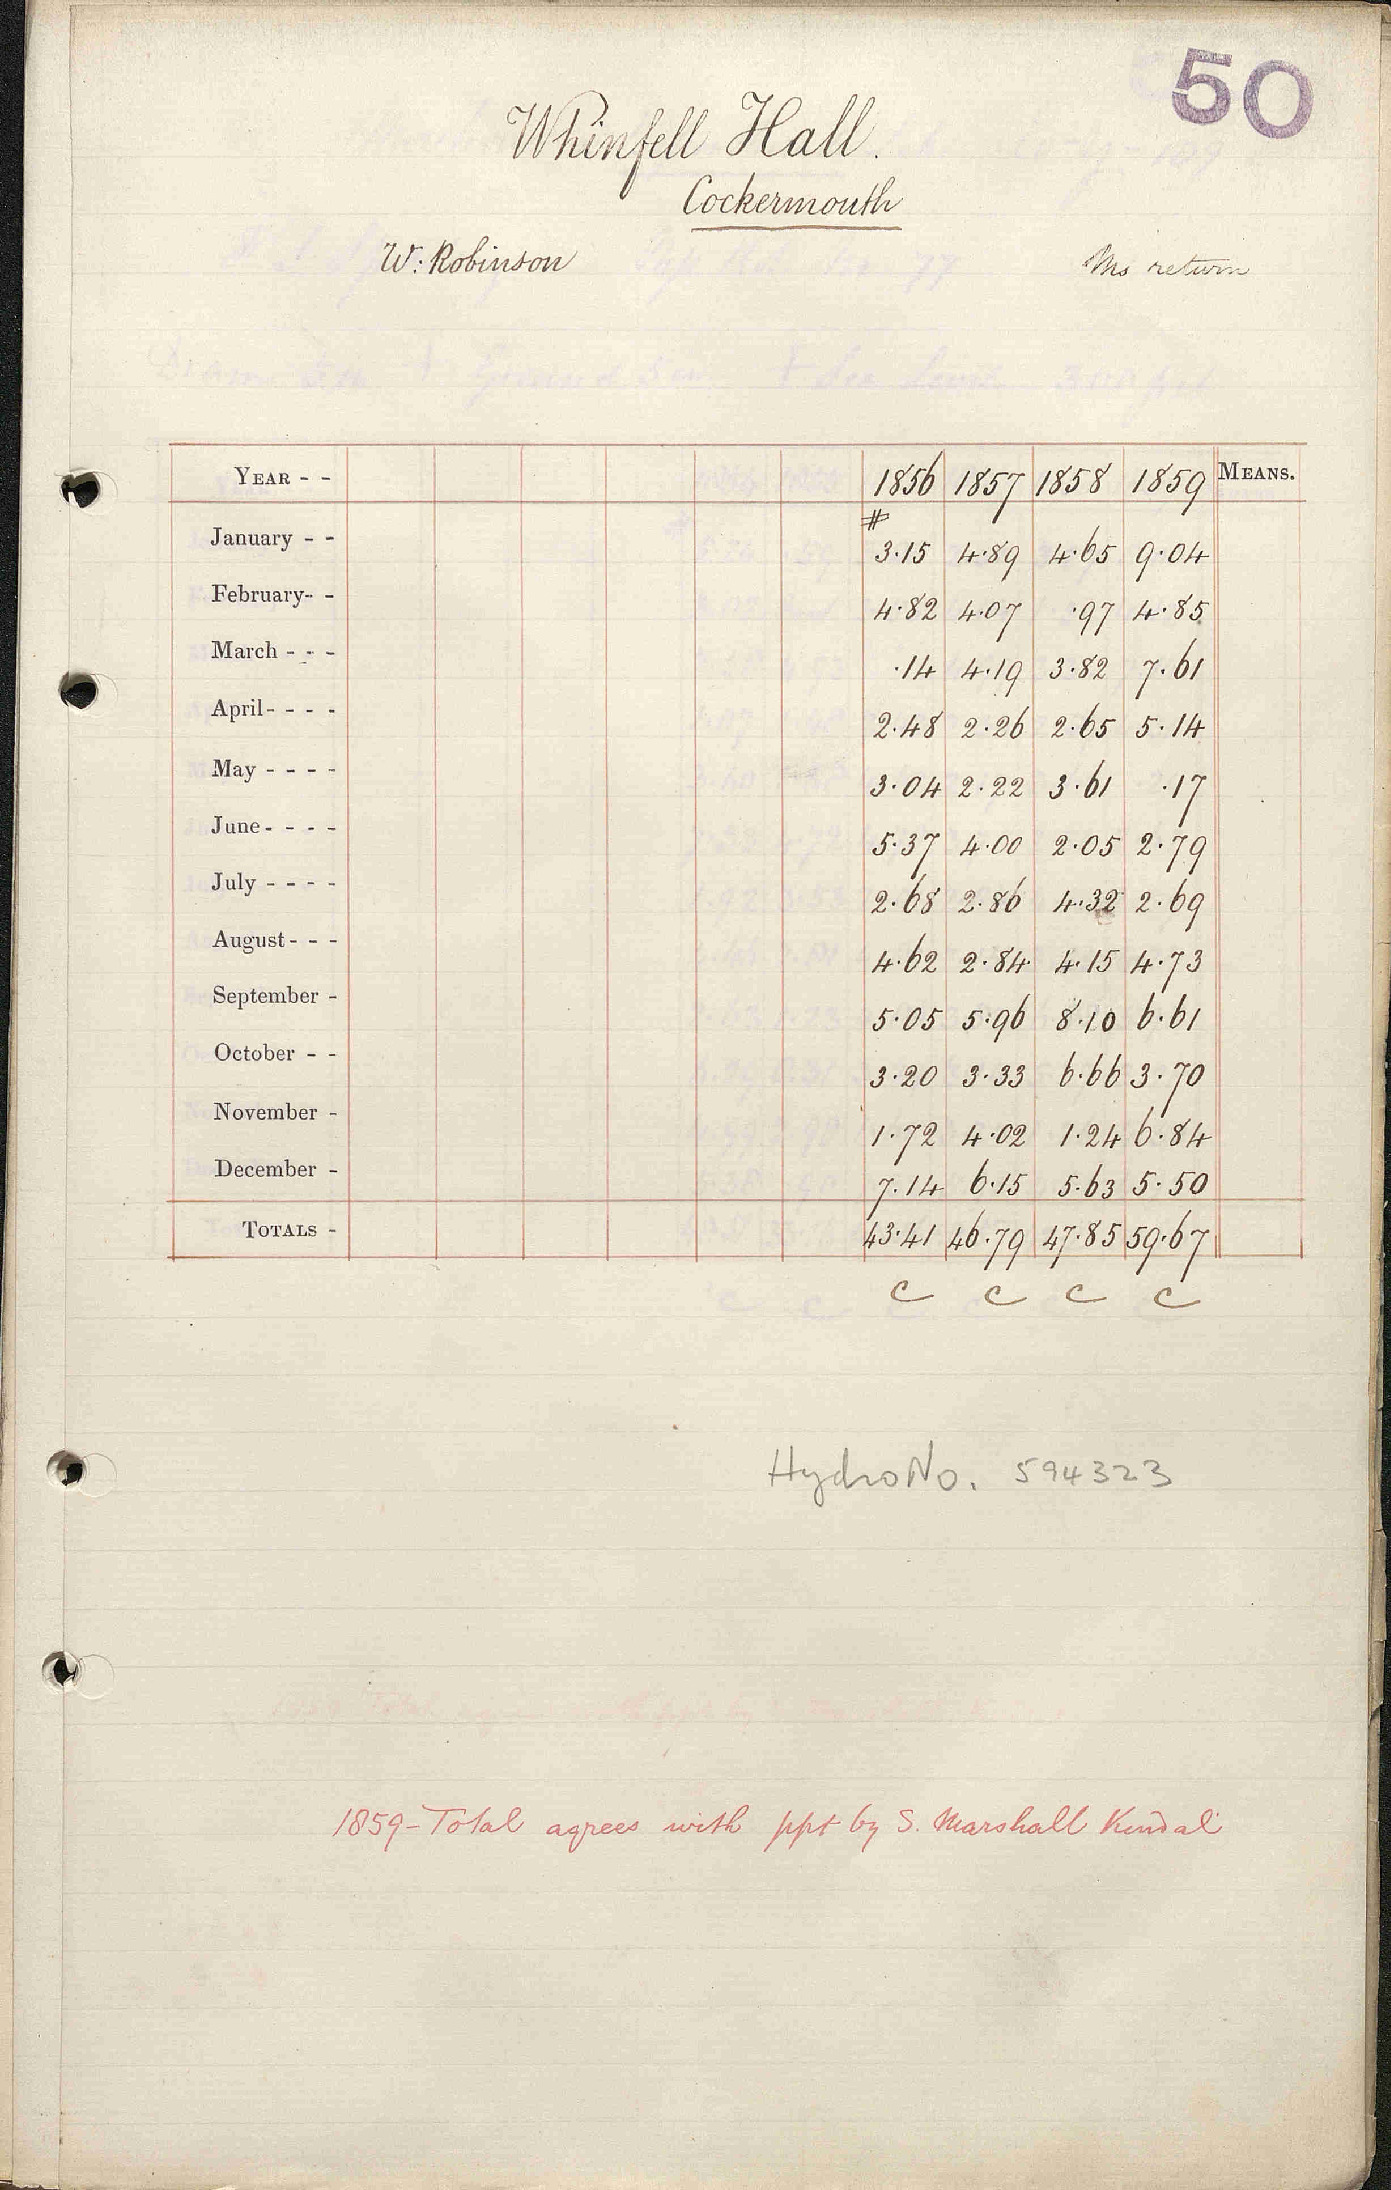 50
Whinfell Hall.
Cockermouth
W: Robinson Ms return
YEAR - - 1856 1857 1858 1859 MEANS.
#
January - - 3.15 4.89 4.65 9.04
February- - 4.82 4.07 .97 4.85
March - - - .14 4.19 3.82 7.61
April- - - - 2.48 2.26 2.65 5.14
May - - - - 3.04 2.22 3.61 .17
June- - - - 5.37 4.00 2.05 2.79
July - - - - 2.68 2.86 4.32 2.69
August- - - 4.62 2.84 4.15 4.73
September - 5.05 5.96 8.10 6.61
October - - 3.20 3.33 6.66 3.70
November - 1.72 4.02 1.24 6.84
December - 7.14 6.15 5.63 5.50
TOTALS - 43.41 46.79 47.85 59.67
c c c c
Hydro No. 594323
1859-Total agrees with ppt by S. Marshall Kendal